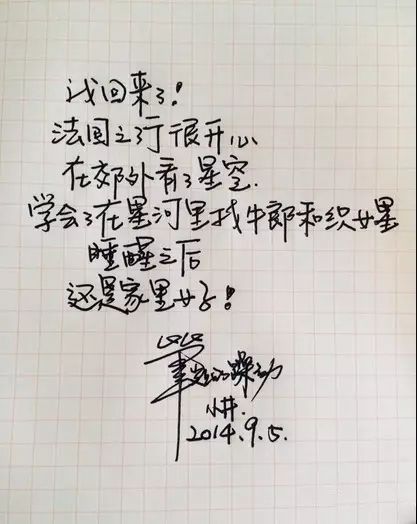 我回来了!
法国之行很开心
在郊外看了星空.
学会了在星河里找牛郎和织女星
睡醒之后
还是家里好!
笔迹的躁动
小井.
2014.9.5.